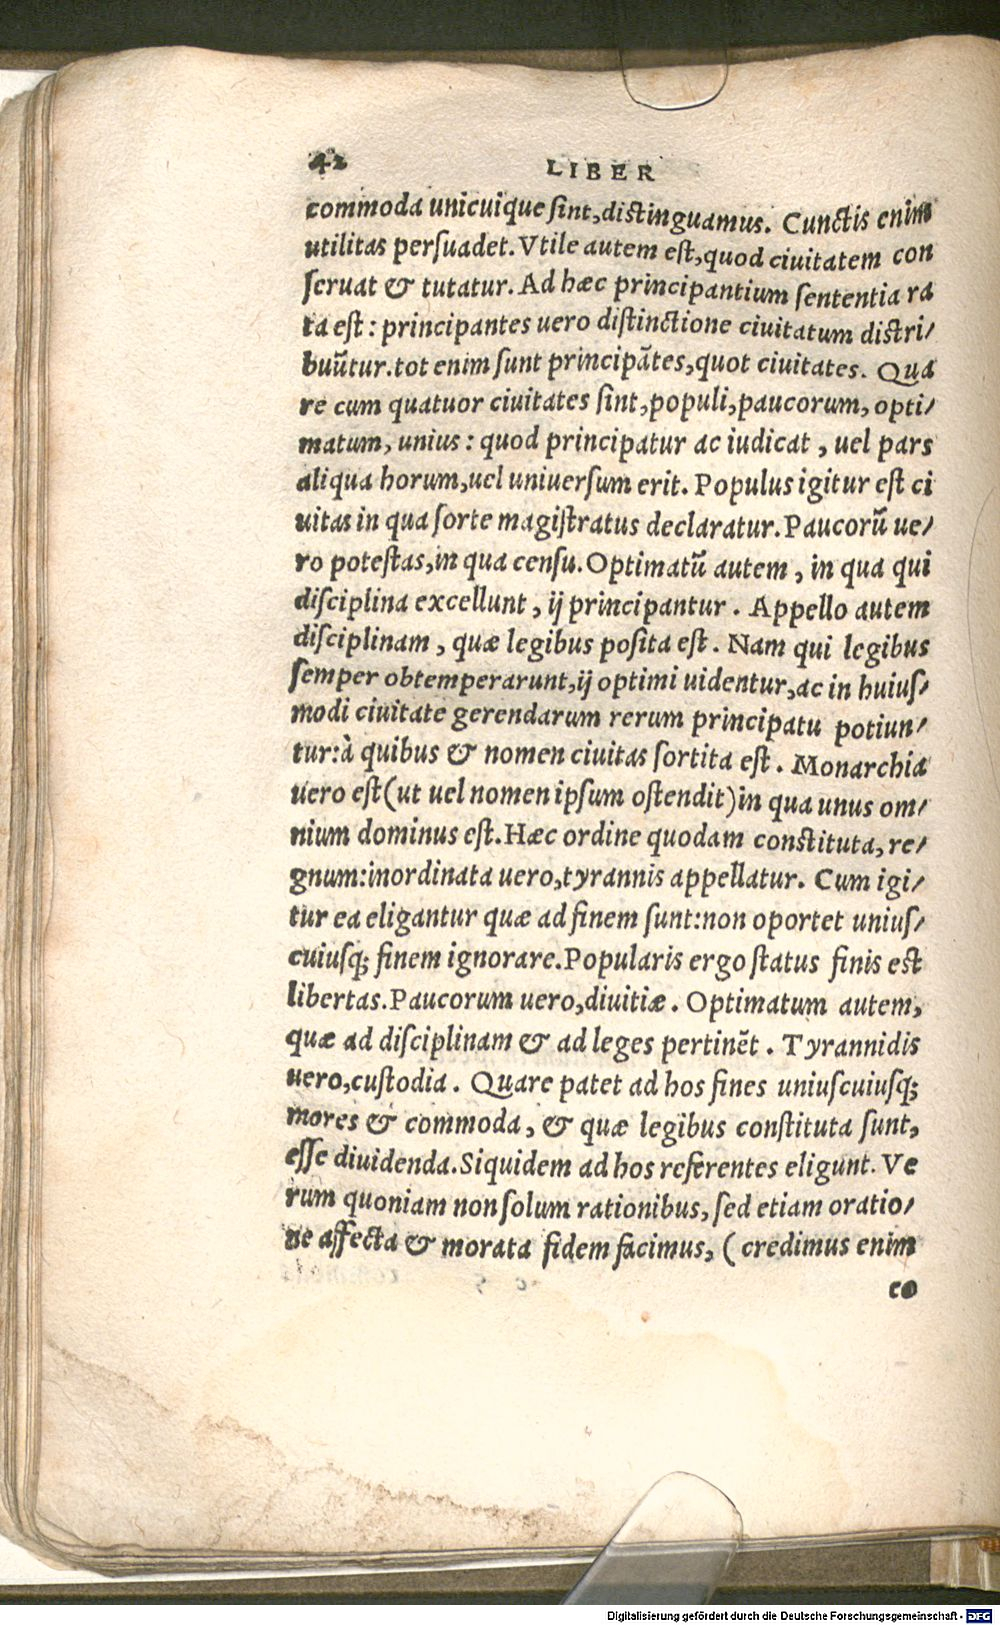 42 LIBER
commoda unicuique ſint, diſtinguamus. Cunctis enim
utilitas perſuadet. Vtile autem eſt, quod ciuitatem con
ſeruat & tutatur. Ad hæc principantium ſententia ra
ta eſt: principantes uero diſtinctione ciuitatum diſtri/
buūtur. tot enim ſunt principātes, quot ciuitates. Qua
re cum quatuor ciuitates ſint, populi, paucorum, opti/
matum, unius: quod principatur ac iudicat, uel pars
aliqua horum, uel uniuerſum erit. Populus igitur eſt ci
uitas in qua ſorte magiſtratus declaratur. Paucorū ue/
ro poteſtas, in qua cenſu. Optimatū autem, in qua qui
diſciplina excellunt, ij principantur. Appello autem
diſciplinam, quæ legibus poſita eſt. Nam qui legibus
ſemper obtemperarunt, ij optimi uidentur, ac in huiuſ/
modi ciuitate gerendarum rerum principatu potiun/
tur: à quibus & nomen ciuitas ſortita eſt. Monarchia
uero eſt (ut uel nomen ipſum oſtendit) in qua unus om/
nium dominus eſt. Hæc ordine quodam conſtituta, re/
gnum: inordinata uero, tyrannis appellatur. Cum igi/
tur ea eligantur quæ ad finem ſunt: non oportet uniuſ/
cuiuſq; finem ignorare. Popularis ergo ſtatus finis eſt
libertas. Paucorum uero, diuitiæ. Optimatum autem,
quæ ad diſciplinam & ad leges pertinēt. Tyrannidis
uero, cuſtodia. Quare patet ad hos fines uniuſcuiuſq;
mores & commoda, & quæ legibus conſtituta ſunt,
eſſe diuidenda. Siquidem ad hos referentes eligunt. Ve
rum quoniam non ſolum rationibus, ſed etiam oratio/
ne affecta & morata fidem facimus, (credimus enim
co
Digitalisierung gefördert durch die Deutsche Forschungsgemeinschaft - DFG